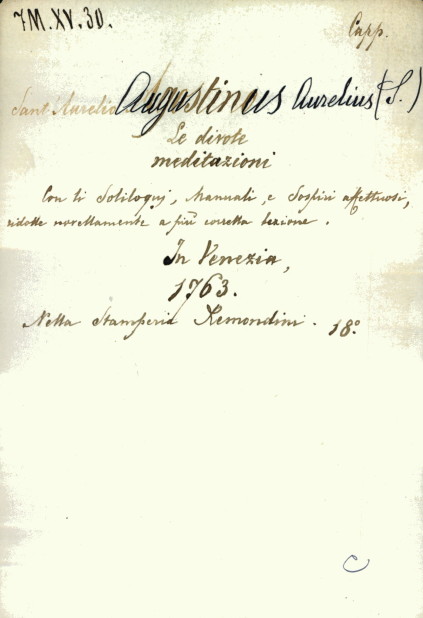 7M.XV.30.
Capp.
Sant Aurelio Augustinus Aurelius (S.)
Le divote
meditazioni
Con li Soliloquj, Manuali, e Sospiri affettuosi,
ridotte novellamente a più corretta lezione.
In Venezia,
1763.
Nella Stamperia Remondini. 18°
C